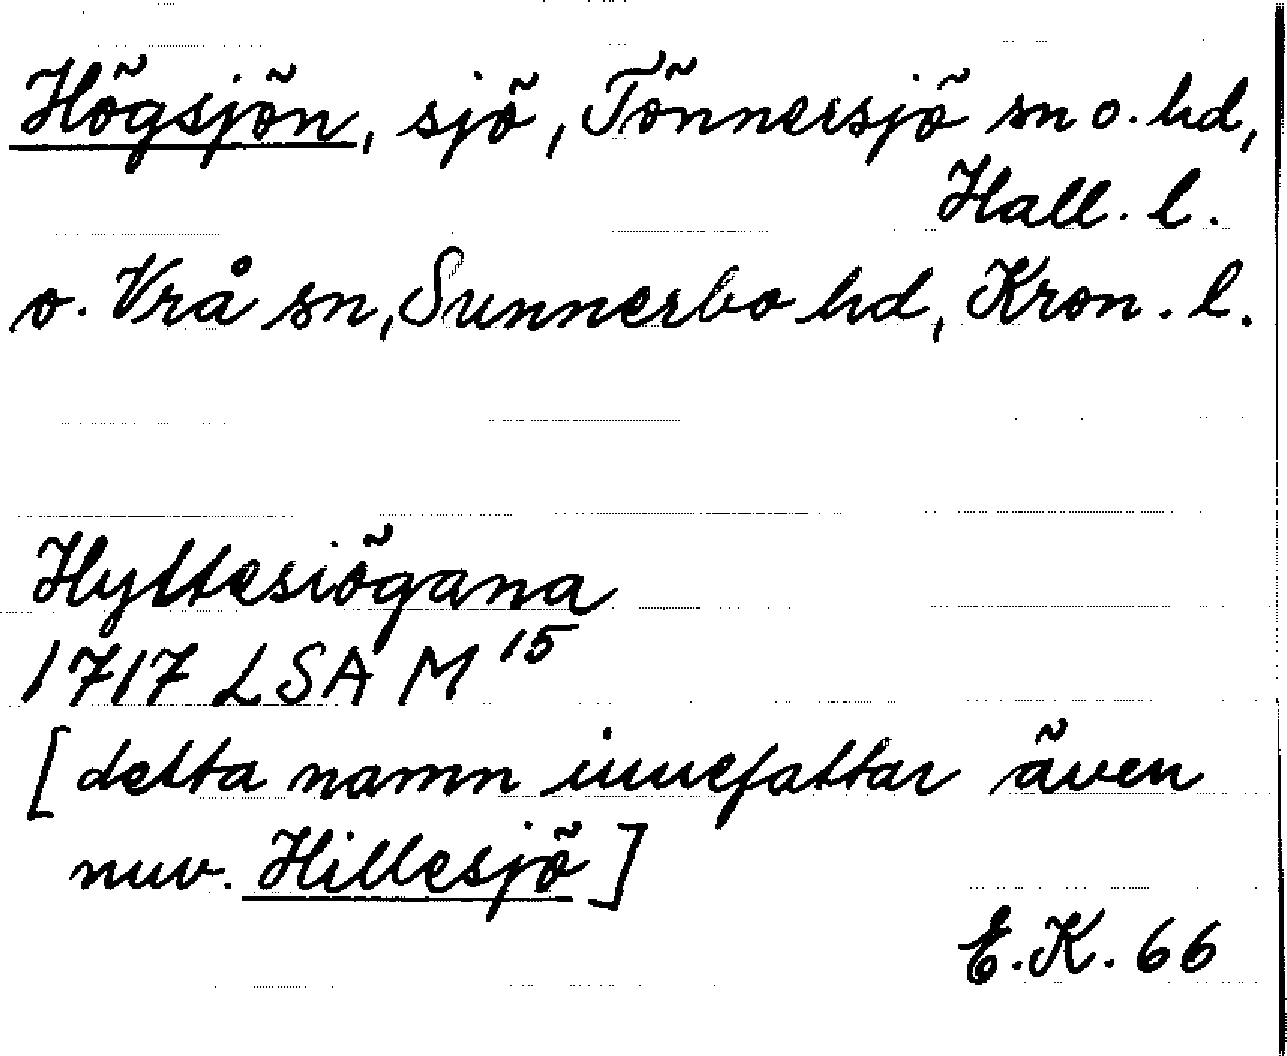 Högsjön, sjö, Tönnersjö sn o. hd,
Hall. l.
o. Vrå sn, Sunnerbo hd, Kron. l.
Hyltesiögana
1717 LSA M 15
[detta namn innefattar även
nuv. Hillesjö]
E.K. 66